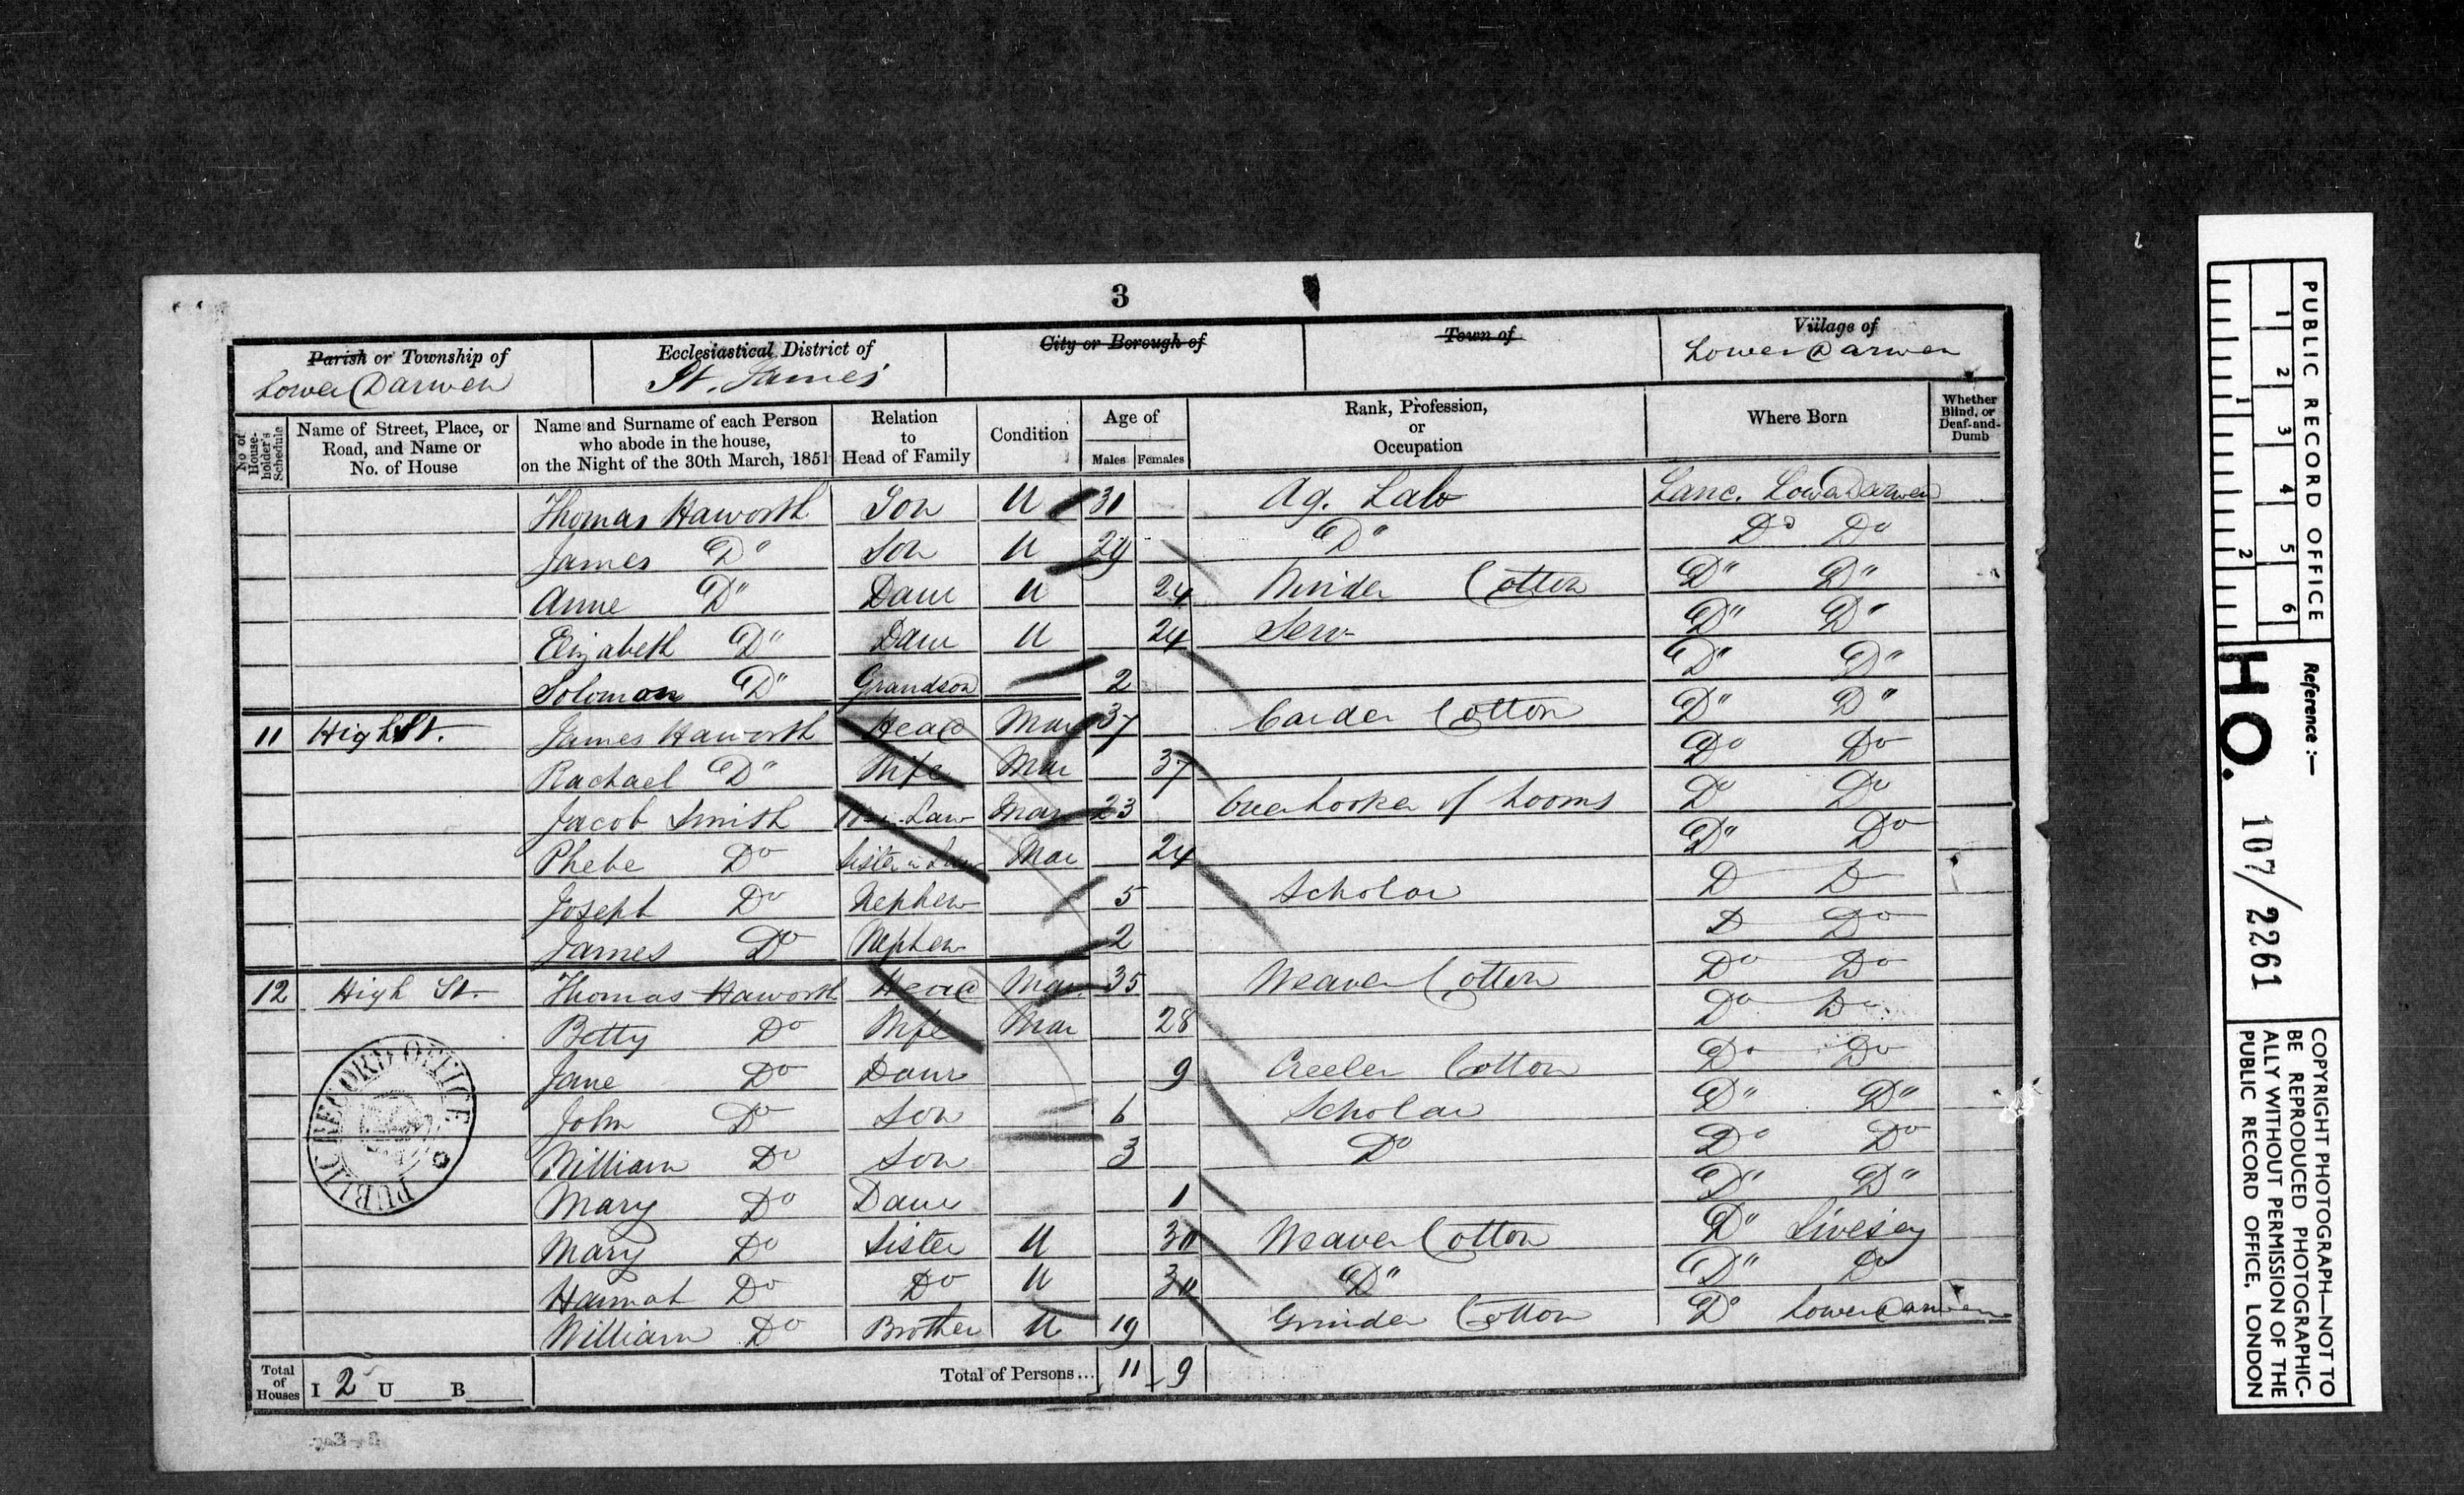 3
Parish or Township of Ecclesiastical District of City or Borough of Town of Village of
Lower Darwen St. James' Lower Darwen
No. of House-holder's Schedule
Name of Street, Place, or Road, and Name or No. of House
Name and Surname of each Person who abode in the house, on the Night of the 30th March, 1851
Relation to Head of Family
Condition
Age of
Males Females
Rank, Profession, or Occupation
Where Born
Whether Blind, or Deaf-and-Dumb
Thomas Haworth Son U 31 Ag. Lab Lanc. Lower Darwen
James Do Son U 29 Do Do Do
Anne Do Daur U 24 Winder Cotton Do Do
Elizabeth Do Daur U 24 Serv Do Do
Solomon Do Grandson 2 Do Do
11 High St. James Haworth Head Mar 37 Carder Cotton Do Do
Rachael Do Wife Mar 37 Do Do
Jacob Smith Law Mar 23 Overlooker of Looms Do Do
Phebe Do Sister in Law Mar 24 Do Do
Joseph Do Nephew 5 Scholar D D
James Do Nephew 2 D Do
12 High St. Thomas Haworth Head Mar 35 Weaver Cotton Do Do
Betty Do Wife Mar 28 Do Do
Jane Do Daur 9 Creeler Cotton Do Do
John Do Son 6 Scholar Do Do
William Do Son 3 Do Do Do
Mary Do Daur 1 Do Do
Mary Do Sister U 30 Weaver Cotton Do Livesey
Hannah Do Do U 30 Do Do Do
William Do Brother U 19 Grinder Cotton Do Lower Darwen
Total of Houses I 2 U B Total of Persons... 11 9
PUBLIC RECORD OFFICE
PUBLIC RECORD OFFICE
1 2 3 4 5 6
1 2
Reference :—
HO. 107/2261
COPYRIGHT PHOTOGRAPH—NOT TO
BE REPRODUCED PHOTOGRAPHIC-
ALLY WITHOUT PERMISSION OF THE
PUBLIC RECORD OFFICE, LONDON